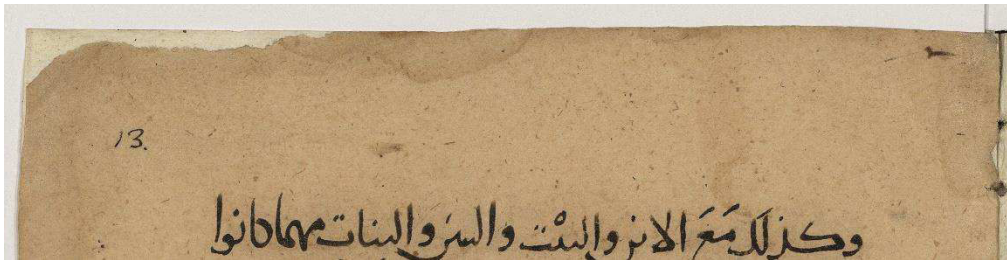 13.
وكذلك مَعَ الابن والبنْت والبنين والبنات مهما كانوا